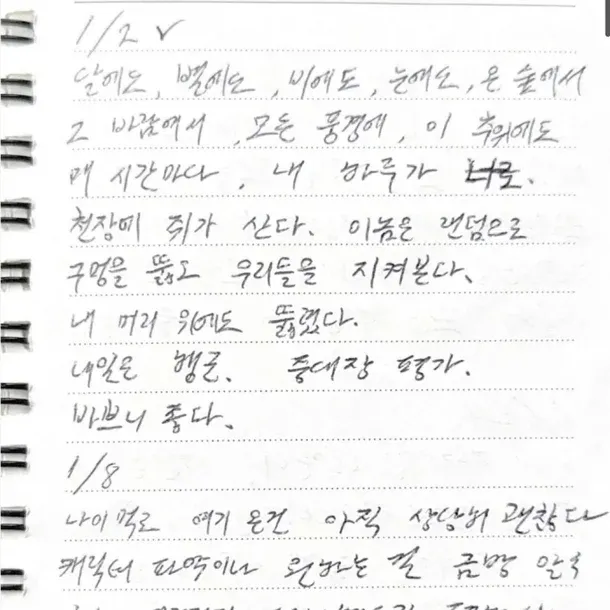 1/2 ✓
달에도, 별에도, 비에도, 눈에도, 온 숲에서
그 바람에서, 모든 풍경에, 이 추위에도
매 시간마다, 내 하루가 너로.
천장에 쥐가 산다. 이놈은 랜덤으로
구멍을 뚫고 우리들을 지켜본다.
내 머리 위에도 뚫렸다.
내일은 행군. 중대장 평가.
바쁘니 좋다.
1/8
나이먹고 여기 온건 아직 상당히 괜찮다
캐릭터 파악이나 원하는 걸 금방 알수